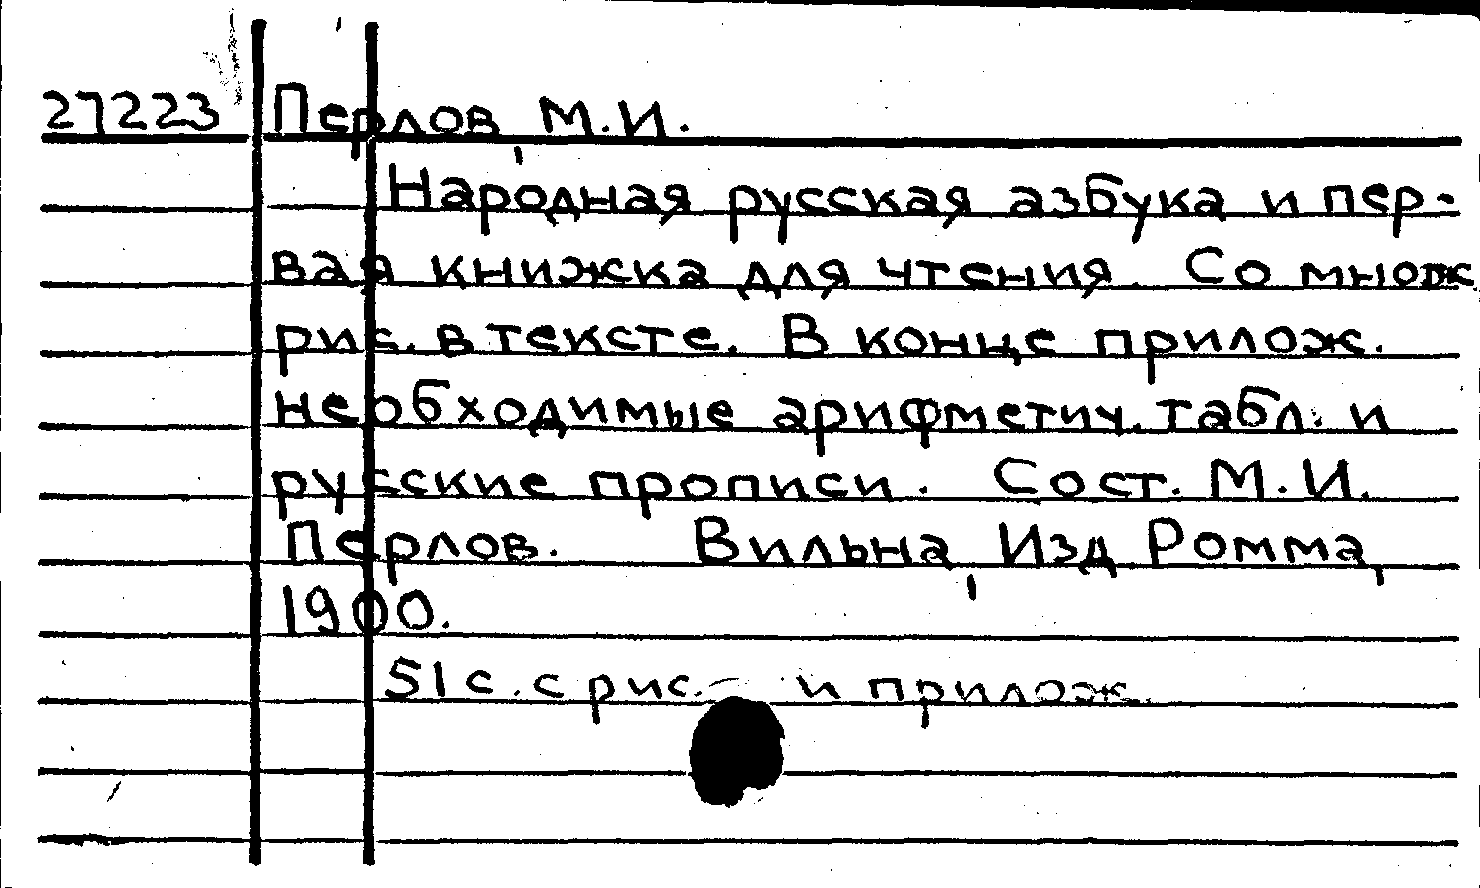 27223 Перлов, М.И.
Народная русская азбука и пер-
вая книжка для чтения. Со множ
рис. в тексте. В конце прилож.
необходимые арифметич. табл. и
русские прописи. Сост. М.И.
Перлов. Вильна, Изд Ромма,
1900.
51 с. с рис. и прилож.